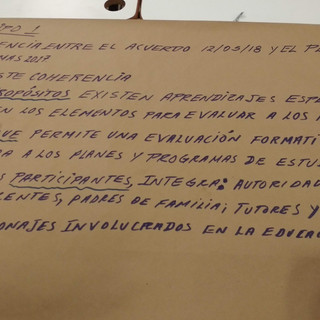 PO 1
ENCIA ENTRE EL ACUERDO 12/05/18 Y EL PL
MAS 2017
STE COHERENCIA
ROPÓSITOS EXISTEN APRENDIZAJES ESPE
N LOS ELEMENTOS PARA EVALUAR A LOS
UE PERMITE UNA EVALUACIÓN FORMATI
A A LOS PLANES Y PROGRAMAS DE ESTU
S PARTICIPANTES, INTEGRA: AUTORIDA
CENTES, PADRES DE FAMILIA; TUTORES Y
ONAJES INVOLUCRADOS EN LA EDUCA